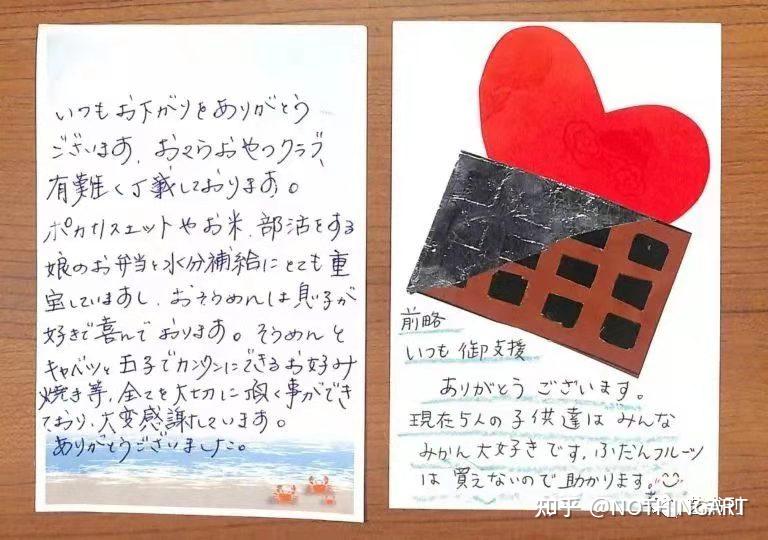 いつもお下がりをありがとう
ございます。おてらおやつクラブ、
有難く丁戴しております。
ポカリスエットやお米、部活をする
娘のお弁当と水分補給にとても重
宝していますし、おそうめんは息子が
好きで喜んでおります。そうめんと
キャベツと玉子でカンタンにできるお好み
焼き等、全てを大切に頂く事ができ
ており、大変感謝しています。
ありがとうございました。
前略
いつも御支援
ありがとうございます。
現在5人の子供達はみんな
みかん大好きです。ふだんフルーツ
は買えないので助かります。
知乎 @NOTHINGART